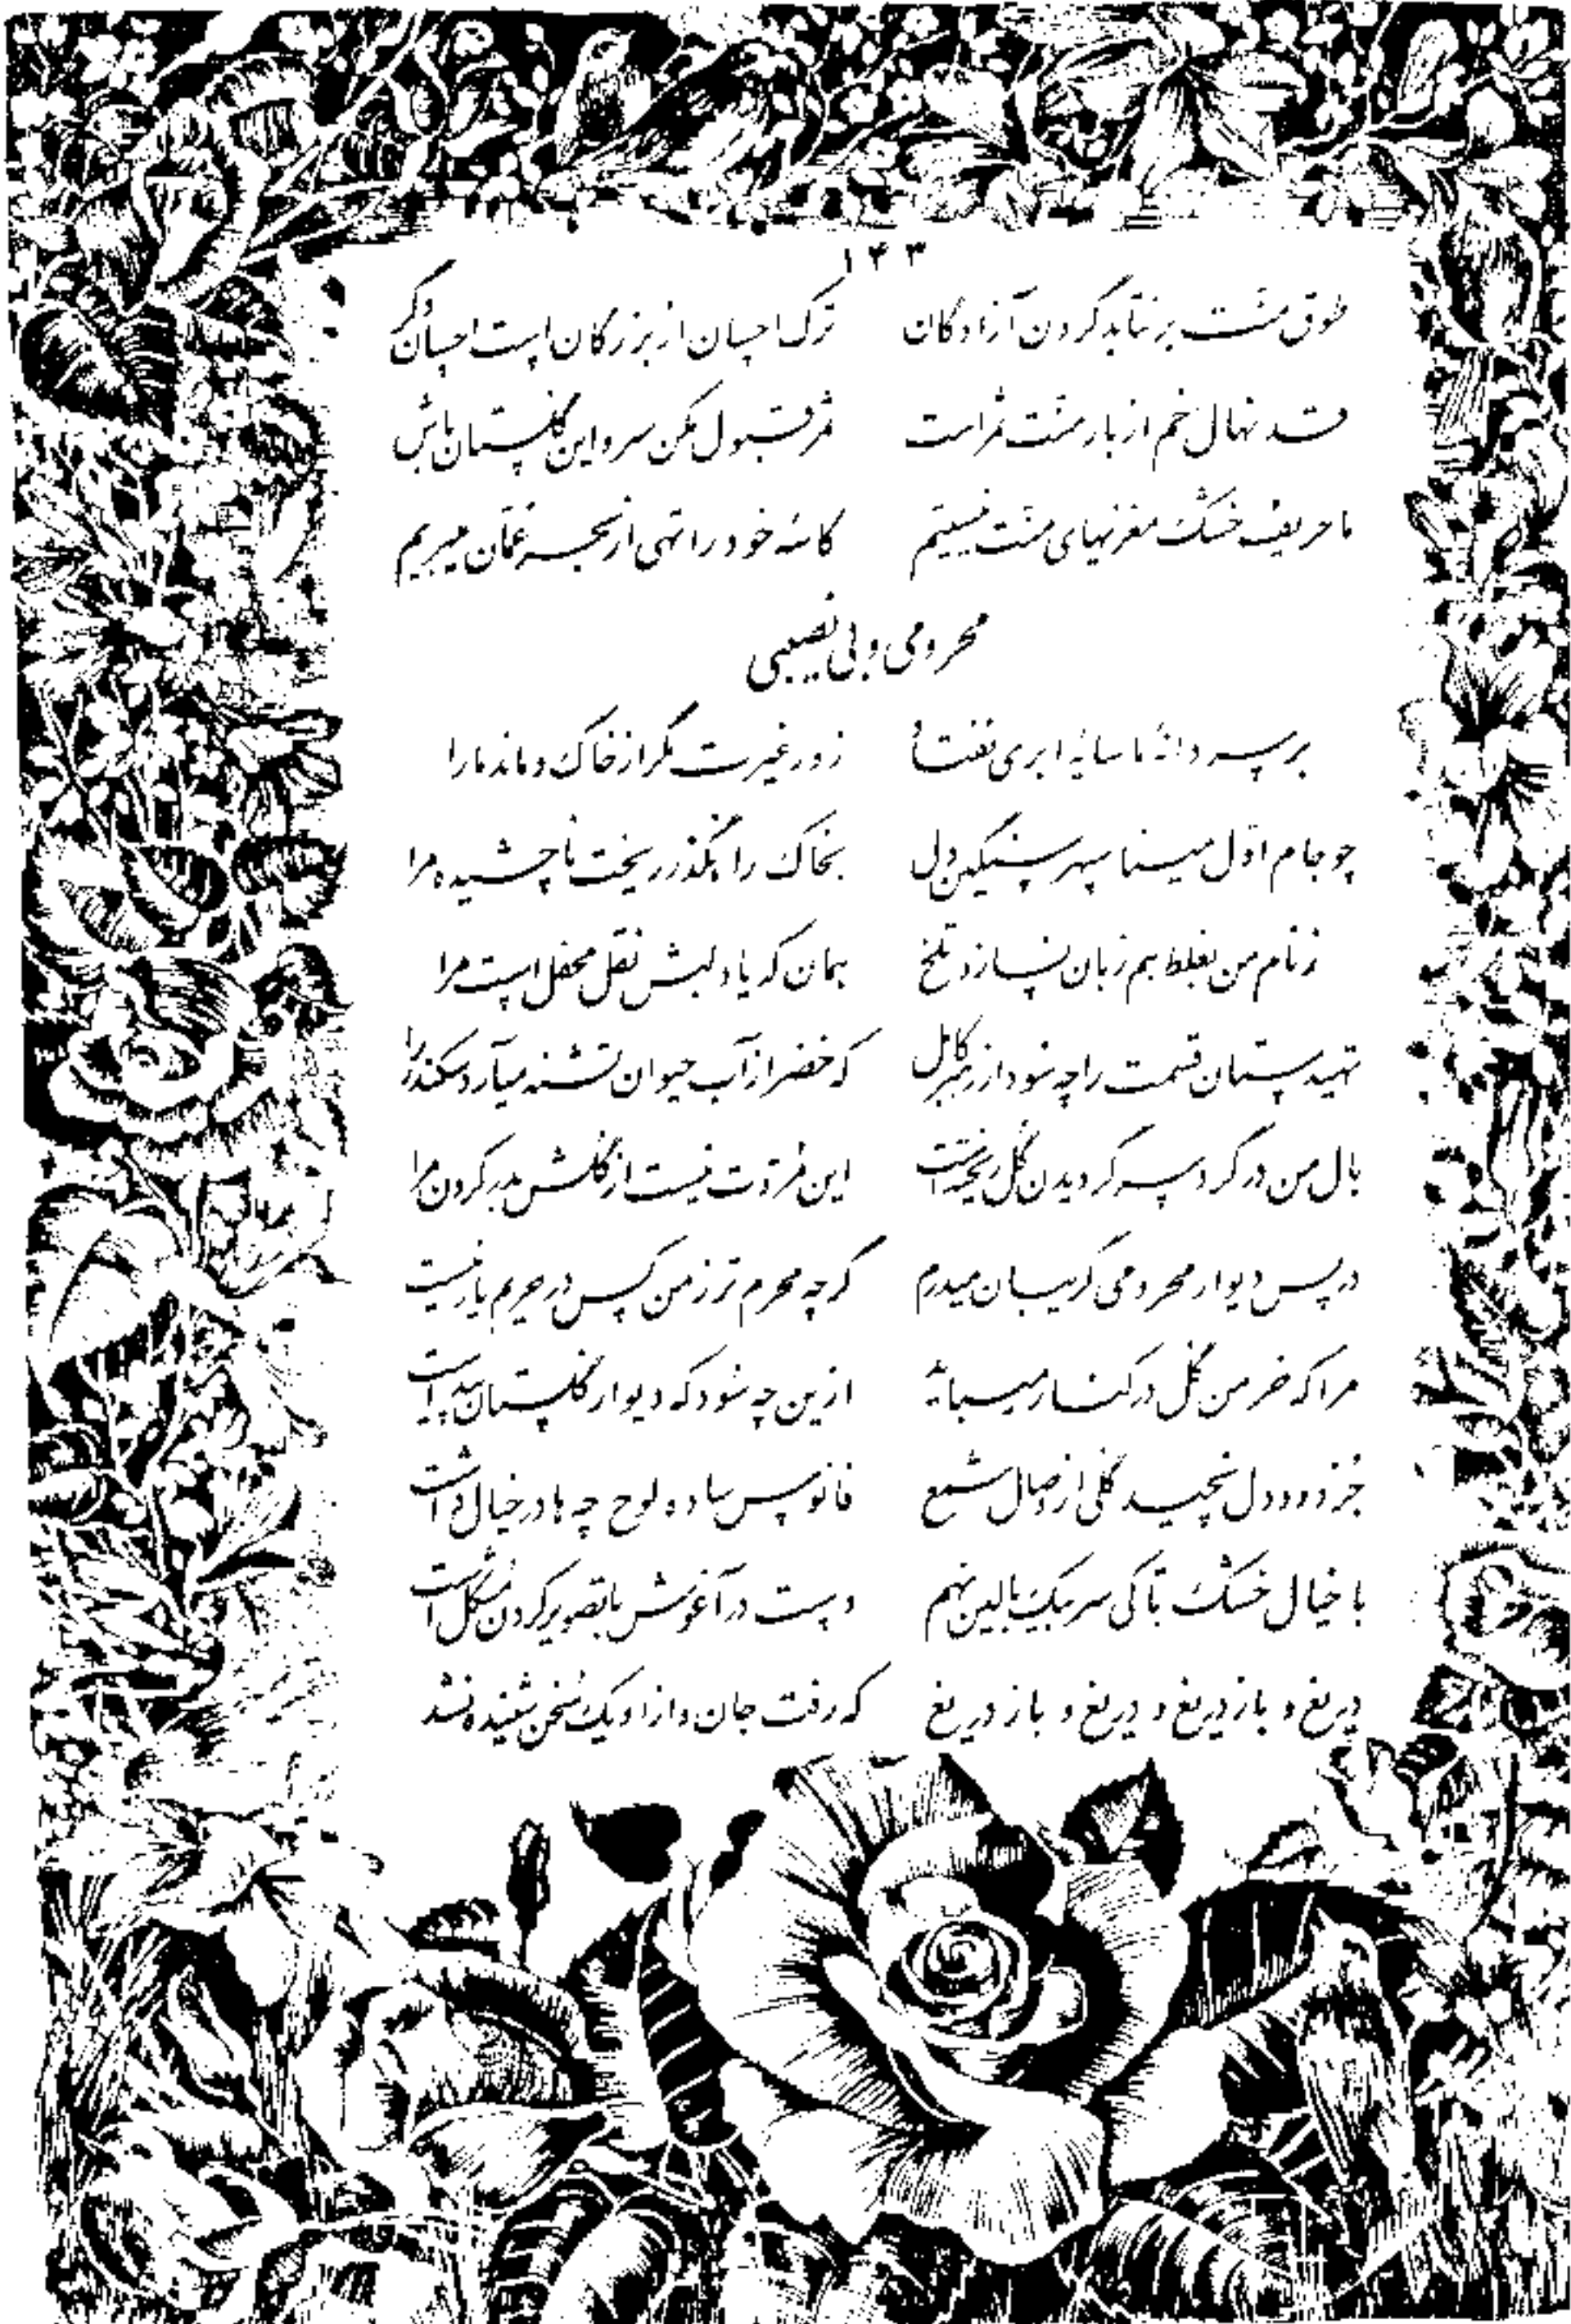 ۱۴۳
طوق منت برنتابد گردن آزادگان ترک احسان از بزرگان است احسان دگر
قد نهال خم از بار منت ثمر است ثمر قبول مکن سرو این گلستان باش
ما حریف خشک مغزیهای منت نیستیم کاسه خود را تهی از بحر عمان میبریم
محرومی و بی نصیبی
بر سر دانه ما سایه ابری نفتاد زور غیرت مگر از خاک دماند ما را
چو جام اول مینا سپهر سنگین دل بخاک راهگذر ریخت ناچشیده مرا
ز نام من بغلط هم زبان نسازد تلخ همان که یاد لبش نقل محفل است مرا
تهیدستان قسمت را چه سود از رهبر کامل که خضر از آب حیوان تشنه میآرد سکندر را
بال من در گرد سر گردیدن گل ریخته است این مروت نیست از گلشن بدر کردن مرا
در پس دیوار محرومی گریبان میدرم گرچه محرم تر ز من کس در حریم یار نیست
مرا که خرمن گل در کنار میباید ازین چه سود که دیوار گلستان پیداست
جز دود دل نچید گلی از وصال شمع فانوس ساده لوح چه ها در خیال داشت
با خیال خشک تا کی سر بیک بالین نهم دست در آغوش با تصویر کردن مشکل است
دریغ و باز دریغ و دریغ و باز دریغ که رفت جان و از او یک سخن شنیده نشد